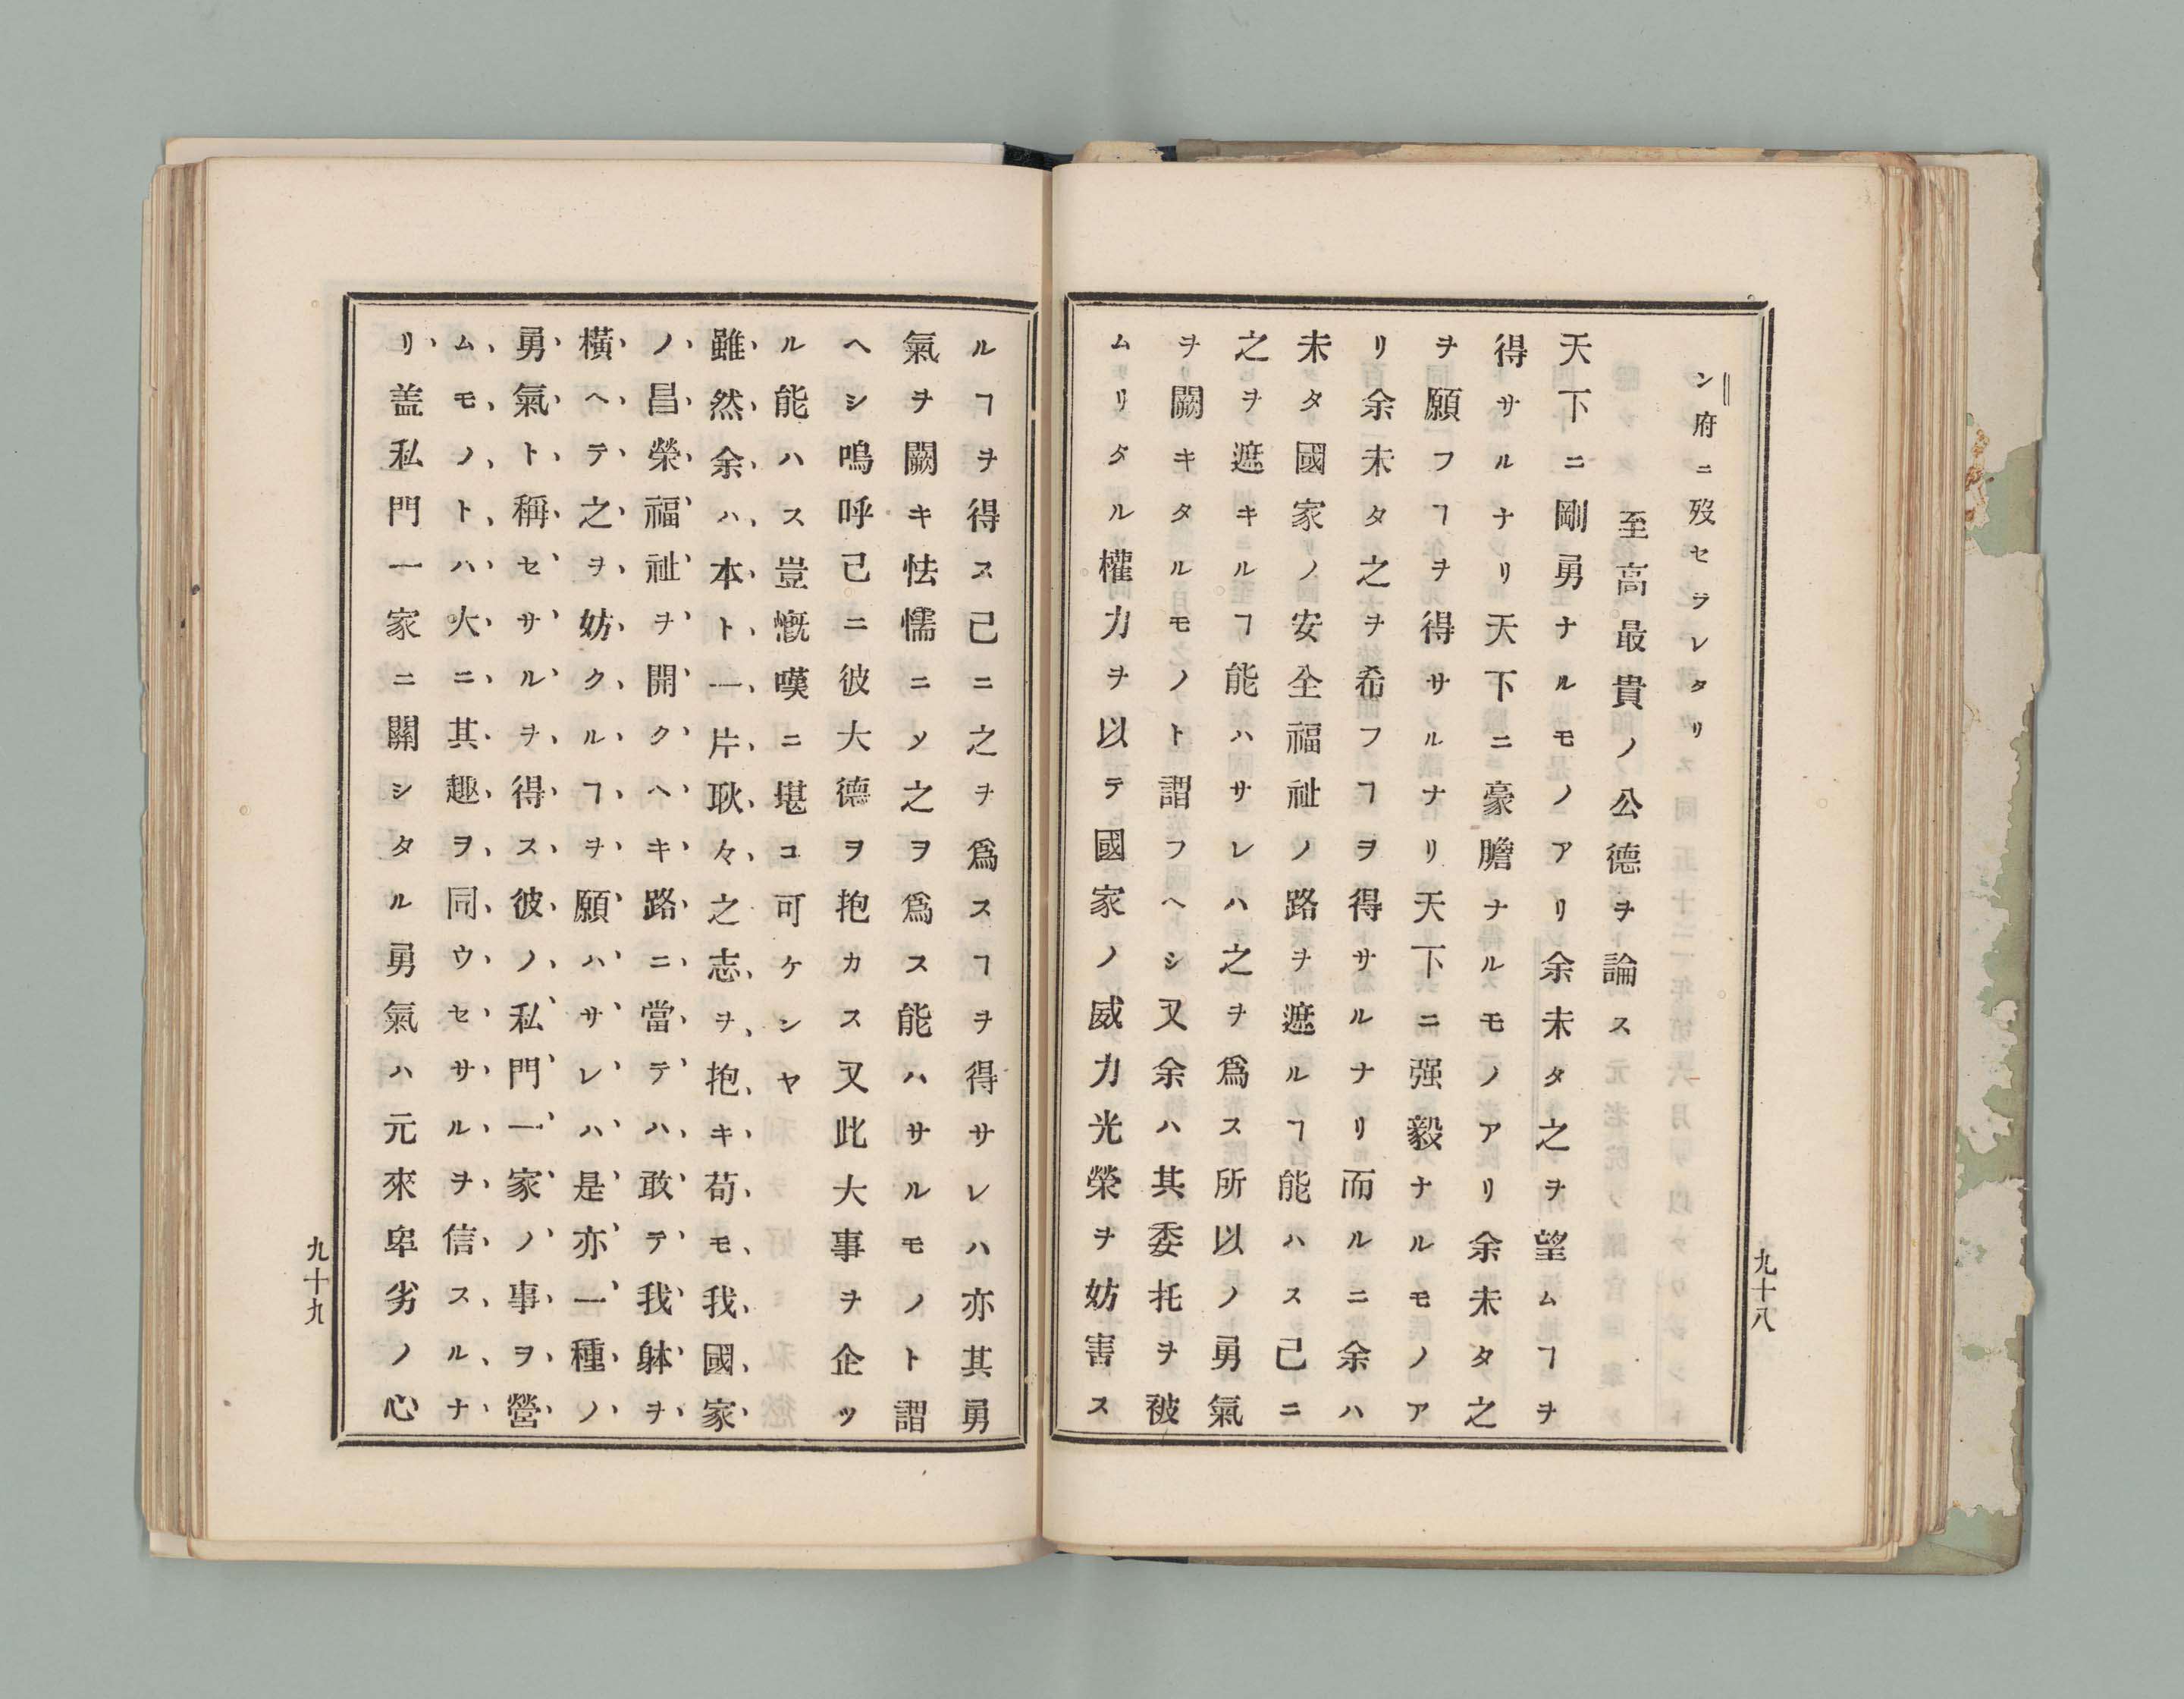 九十八
ン府ニ歿セラレタリ
至高最貴ノ公德ヲ論ス
天下ニ剛勇ナルモノアリ余未タ之ヲ望ムヿヲ
得サルナリ天下ニ豪膽ナルモノアリ余未タ之
ヲ願フヿヲ得サルナリ天下ニ强毅ナルモノア
リ余未タ之ヲ希フヿヲ得サルナリ而ルニ余ハ
未タ國家ノ安全福祉ノ路ヲ遮ルヿ能ハス己ニ
之ヲ遮キルヿ能ハサレハ之ヲ爲ス所以ノ勇氣
ヲ闕キタルモノト謂フヘシ又余ハ其委托ヲ被
ムリタル權力ヲ以テ國家ノ威力光榮ヲ妨害ス
ルヿヲ得ス己ニ之ヲ爲スヿヲ得サレハ亦其勇
氣ヲ闕キ怯懦ニメ之ヲ爲ス能ハサルモノト謂
ヘシ嗚呼己ニ彼大德ヲ抱カス又此大事ヲ企ツ
ル能ハス豈慨嘆ニ堪コ可ケンヤ
雖然余ハ本ト一片耿々之志ヲ抱キ苟モ我國家
ノ昌榮福祉ヲ開クヘキ路ニ當テハ敢テ我躰ヲ
橫ヘテ之ヲ妨クルヿヲ願ハサレハ是亦一種ノ
勇氣ト稱セサルヲ得ス彼ノ私門一家ノ事ヲ營
ムモノトハ大ニ其趣ヲ同ウセサルヲ信スルナ
リ盖私門一家ニ關シタル勇氣ハ元來卑劣ノ心
九十九